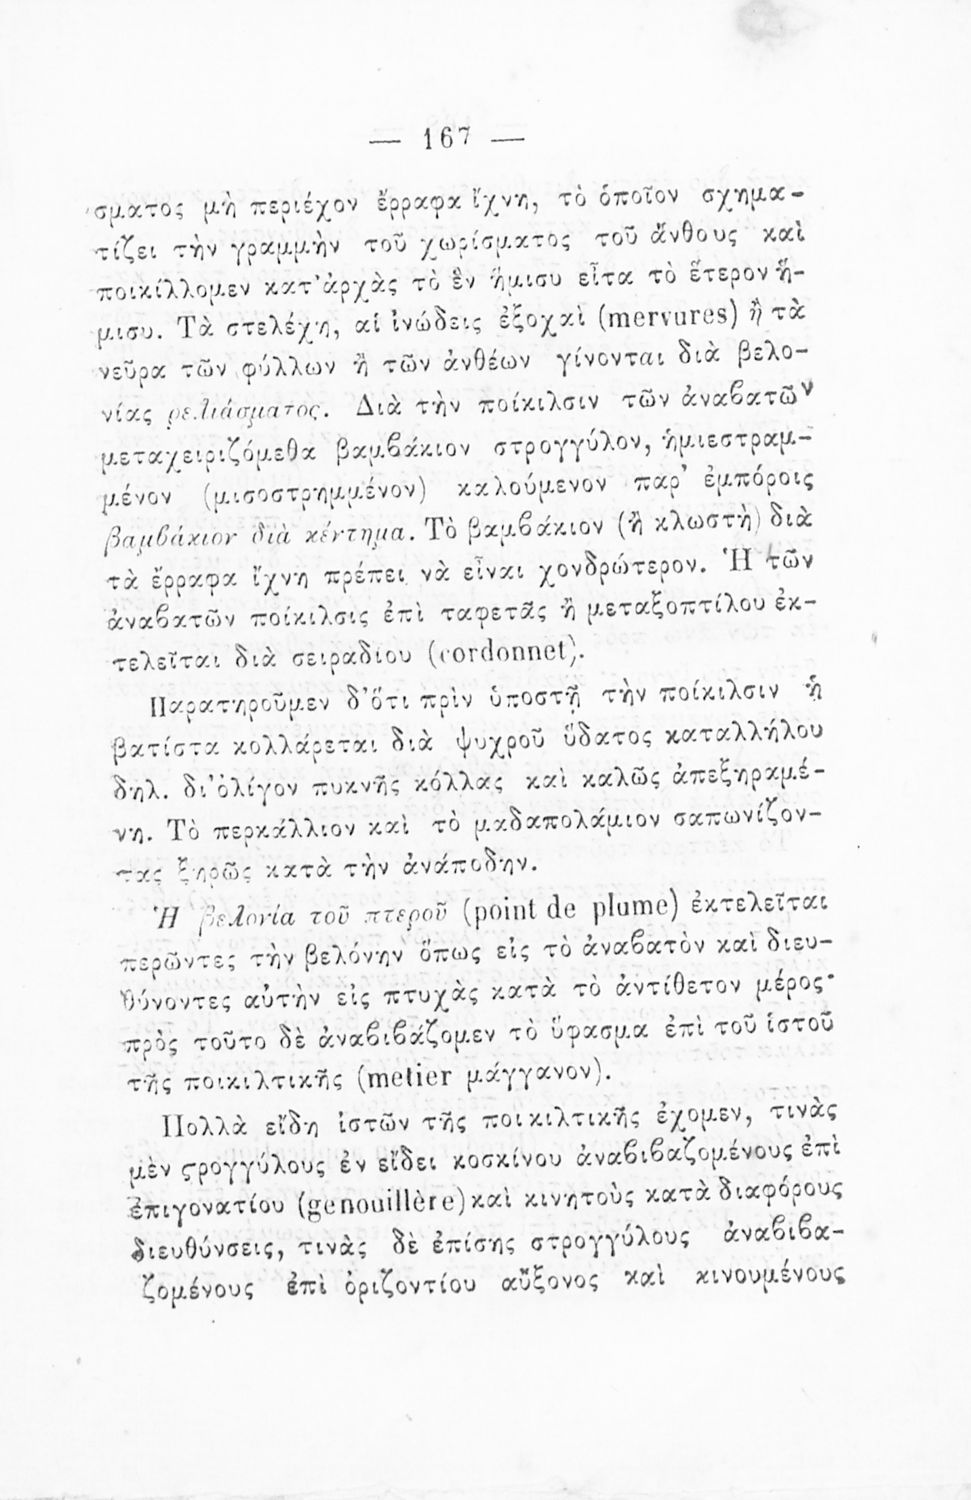 — 167 —
σματος μὴ περιέχον ἔρραφα ἴχνη, τὸ ὁποῖον σχημα-
τίζει τὴν γραμμὴν τοῦ χωρίσματος τοῦ ἄνθους καὶ
ποικίλλομεν κατ'ἀρχὰς τὸ ἓν ἥμισυ εἶτα τὸ ἕτερον ἥ-
μισυ. Τὰ στελέχη, αἱ ἰνώδεις ἐξοχαὶ (mervures) ἢ τὰ
νεῦρα τῶν φύλλων ἢ τῶν ἀνθέων γίνονται διὰ βελο-
νίας ρελιάσματος. Διὰ τὴν ποίκιλσιν τῶν ἀναβατῶν
μεταχειριζόμεθα βαμβάκιον στρογγύλον, ἡμιεστραμ-
μένον (μισοστρημμένον) καλούμενον παρ' ἐμπόροις
βαμβάκιον διὰ κέντημα. Τὸ βαμβάκιον (ἢ κλωστὴ) διὰ
τὰ ἔρραφα ἴχνη πρέπει νὰ εἶναι χονδρώτερον. Ἡ τῶν
ἀναβατῶν ποίκιλσις ἐπὶ ταφετᾶς ἢ μεταξοπτίλου ἐκ-
τελεῖται διὰ σειραδίου (cordonnet).
Παρατηροῦμεν δ'ὅτι πρὶν ὑποστῇ τὴν ποίκιλσιν ἡ
βατίστα κολλάρεται διὰ ψυχροῦ ὕδατος καταλλήλου
δηλ. δι'ὀλίγον πυκνῆς κόλλας καὶ καλῶς ἀπεξηραμέ-
νη. Τὸ περκάλλιον καὶ τὸ μαδαπολάμιον σαπωνίζον-
τας ξηρῶς κατὰ τὴν ἀνάποδην.
Ἡ βελονία τοῦ πτεροῦ (point de plume) ἐκτελεῖται
περῶντες τὴν βελόνην ὅπως εἰς τὸ ἀναβατὸν καὶ διευ-
θύνοντες αὐτὴν εἰς πτυχὰς κατὰ τὸ ἀντίθετον μέρος·
πρὸς τοῦτο δὲ ἀναβιβάζομεν τὸ ὕφασμα ἐπὶ τοῦ ἱστοῦ
τῆς ποικιλτικῆς (metier μάγγανον).
Πολλὰ εἴδη ἱστῶν τῆς ποικιλτικῆς ἔχομεν, τινὰς
μὲν ϛρογγύλους ἐν εἴδει κοσκίνου ἀναβιβαζομένους ἐπὶ
ἐπιγονατίου (genouillère) καὶ κινητοὺς κατὰ διαφόρους
διευθύνσεις, τινὰς δὲ ἐπίσης στρογγύλους ἀναβιβα-
ζομένους ἐπὶ ὁριζοντίου αὔξονος καὶ κινουμένους